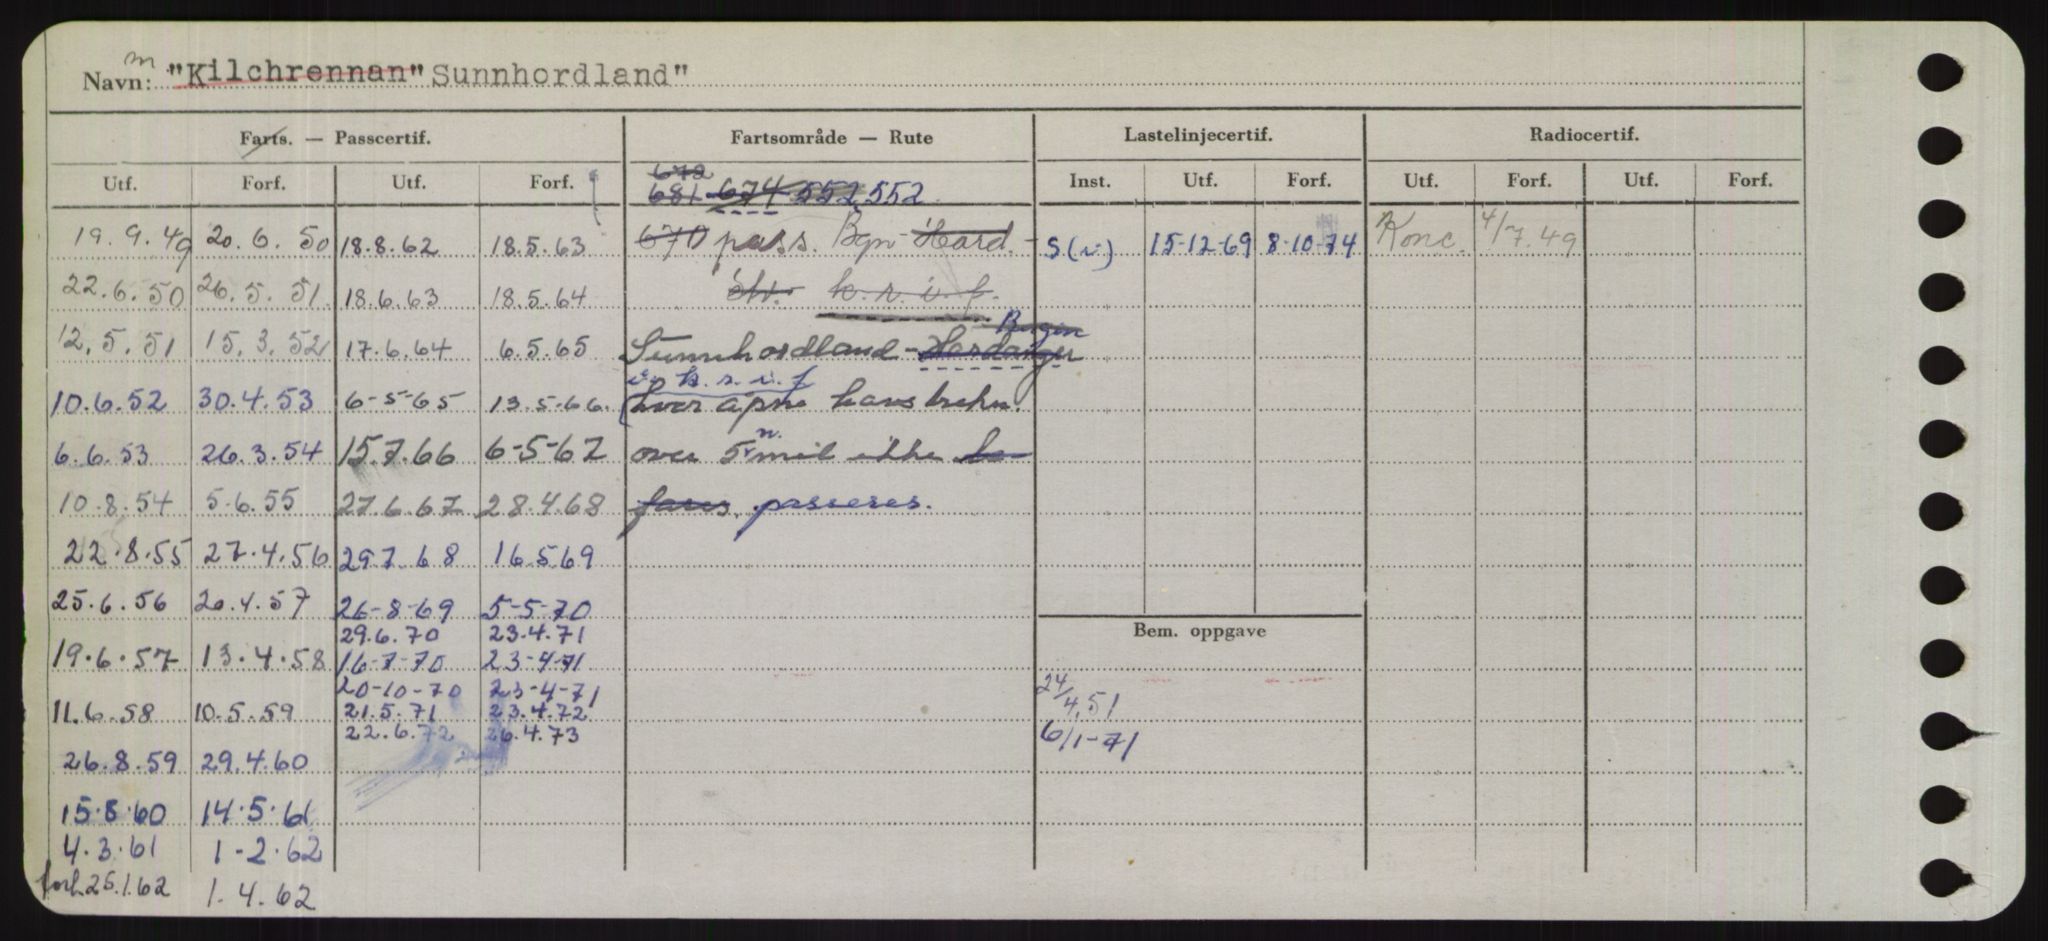 m
Navn: "Kilchrennan" Sunnhordland"
Farts. — Passcertif. Fartsområde — Rute Lastelinjecertif. Radiocertif.
Utf. Forf. Utf. Forf. 681 674 552 552 Inst. Utf. Forf. Utf. Forf. Utf. Forf.
19.9.49 20.6.50 18.8.62 18.5.63 670 pass. Bgn-Hard. S(v) 15-12-69 8-10-74 Konc. 4/7.49
22.6.50 26.5.51 18.6.63 18.5.64 k.r.i.f.
Bergen
12.5.51 15.3.52 17.6.64 6.5.65 Sunnhordland-Hardanger
k.r.i.f
10.6.52 30.4.53 6-5-65 13.5-66. hvor åpne havstrekn.
6.6.53 26.3.54 15.7.66 6-5-67 over 5 n. mil ikke
10.8.54 5.6.55 27.6.67 28.4.68 fares. passeres.
22.8.55 27.4.56 29.7.68 16.5.69
25.6.56 20.4.57 26-8-69 5-5-70
29.6.70 23.4.71 Bem. oppgave
19.6.57 13.4.58 16-7-70 23-4-71
20-10-70 23-4-71 24/4.51
11.6.58 10.5.59 21.5.71 23.4.72
22.6.72 26.4.73 6/1-71
26.8.59 29.4.60
15.8.60 14.5.61
4.3.61 1-2.62
forl. 25.1.62 1.4.62